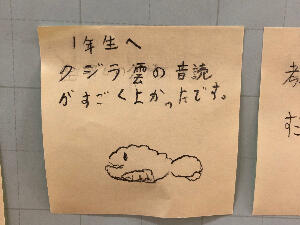 1年生へ
クジラ雲の音読
がすごく上かったです。
孝
すご